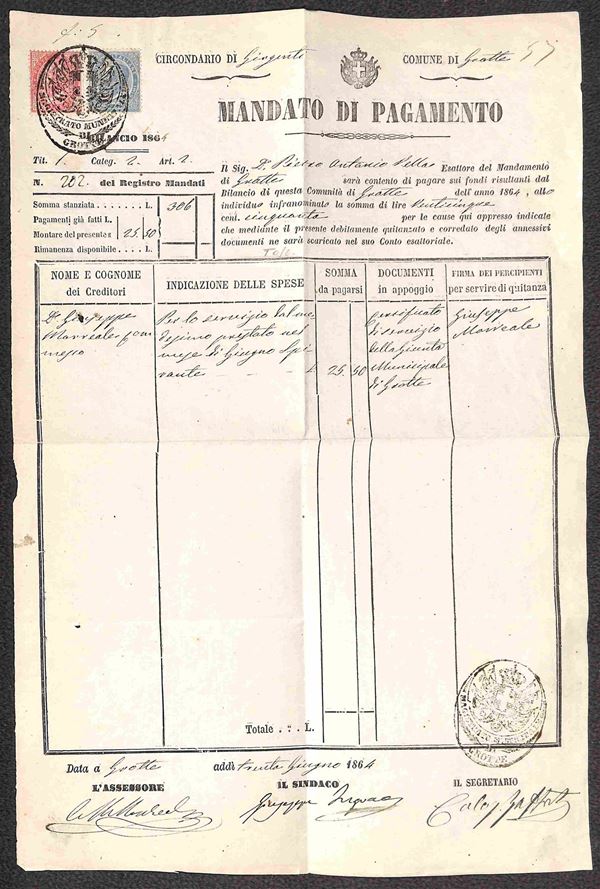 CIRCONDARIO DI Girgenti
COMUNE DI Grotte
MANDATO DI PAGAMENTO
GROTTE
BILANCIO 1864
Tit. 1. Categ. 2. Art. 2.
N. 202. del Registro Mandati
Somma stanziata L. 306
Pagamenti già fatti L.
Montare del presente » 25.50
Rimanenza disponibile L.
Il Sig. D. Pietro Antonio Esattore del Mandamento
di Grotte sarà contento di pagare sui fondi risultanti dal
Bilancio di questa Comunità di Grotte dell'anno 1864, allo
individuo infranominato la somma di lire Venticinque
cent. cinquanta per le cause qui appresso indicate
che mediante il presente debitamente quitanzato e corredato degli annessivi
documenti ne sarà scaricato nel suo Conto esattoriale.
NOME E COGNOME
dei Creditori
INDICAZIONE DELLE SPESE
SOMMA
da pagarsi
DOCUMENTI
in appoggio
FIRMA DEI PERCIPIENTI
per servire di quitanza
D. Giuseppe
Morreale com
messo
Per lo servizio dal me
desimo prestato nel
mese di Giugno spi
rante
£ 25.50
certificato
di servizio
della Giunta
Municipale
di Grotte
Giuseppe
Morreale
Totale . . . L.
GROTTE
Data a Grotte addì trenta Giugno 1864
L'ASSESSORE
IL SINDACO
IL SEGRETARIO
Giuseppe